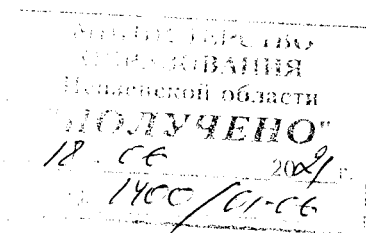 МИНИСТЕРСТВО
ОБРАЗОВАНИЯ
области
"ПОЛУЧЕНО"
18 . 06 2021 г.
1400/01-06